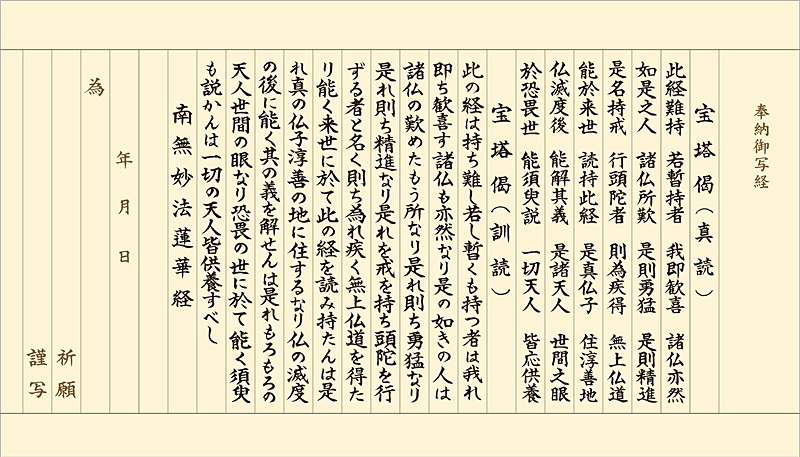 奉納御写経
宝塔偈（真読）
此経難持　若暫持者　我即歓喜　諸仏亦然
如是之人　諸仏所歎　是則勇猛　是則精進
是名持戒　行頭陀者　則為疾得　無上仏道
能於来世　読持此経　是真仏子　住淳善地
仏滅度後　能解其義　是諸天人　世間之眼
於恐畏世　能須臾説　一切天人　皆応供養
宝塔偈（訓読）
此の経は持ち難し若し暫くも持つ者は我れ
即ち歓喜す諸仏も亦然なり是の如きの人は
諸仏の歎めたもう所なり是れ則ち勇猛なり
是れ則ち精進なり是れを戒を持ち頭陀を行
ずる者と名く則ち為れ疾く無上仏道を得た
り能く来世に於て此の経を読み持たんは是
れ真の仏子淳善の地に住するなり仏の滅度
の後に能く其の義を解せんは是れもろもろの
天人世間の眼なり恐畏の世に於て能く須臾
も説かんは一切の天人皆供養すべし
南無妙法蓮華経
年　月　日
為
祈願
謹写